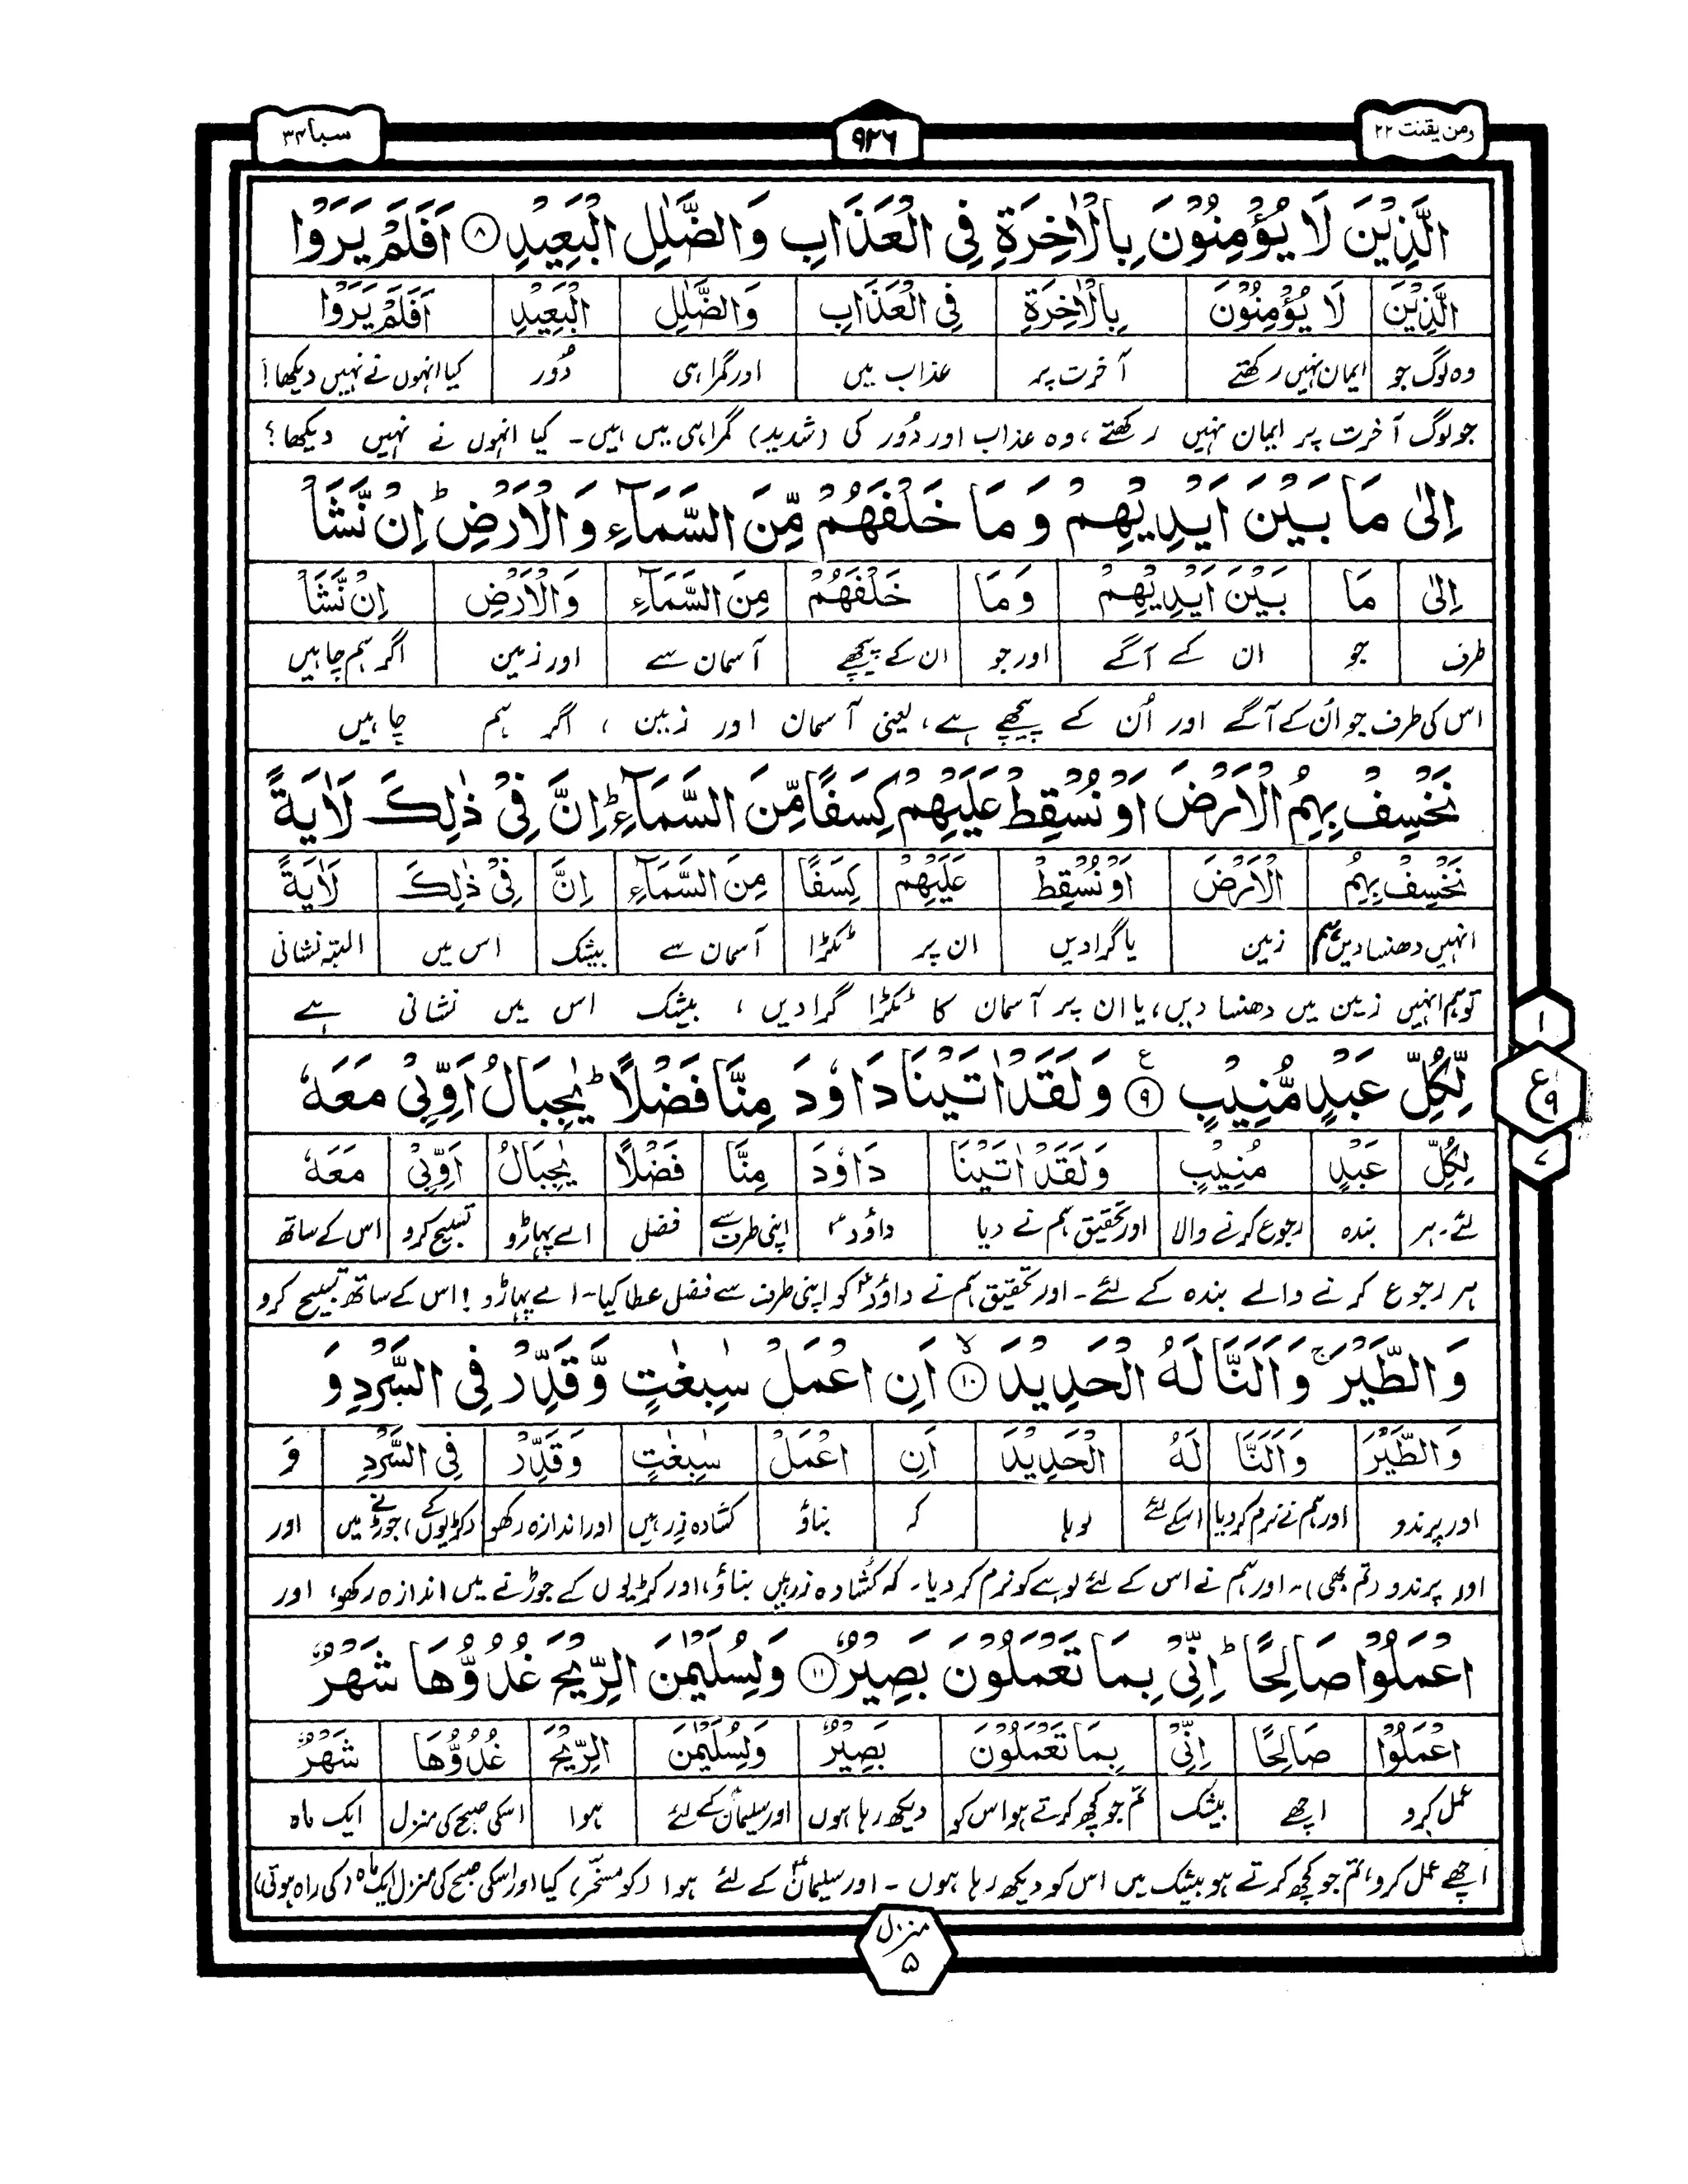 ومن یقنت ۲۲
۹۲۶
سبا ۳۴
الَّذِیْنَ لَا یُؤْمِنُوْنَ بِالْاٰخِرَةِ فِی الْعَذَابِ وَالضَّلٰلِ الْبَعِیْدِ ۸ اَفَلَمْ یَرَوْا
الَّذِیْنَ لَا یُؤْمِنُوْنَ بِالْاٰخِرَةِ فِی الْعَذَابِ وَالضَّلٰلِ الْبَعِیْدِ اَفَلَمْ یَرَوْا
وہ لوگ جو ایمان نہیں رکھتے آخرت پر عذاب میں اور گمراہی دُور کیا انہوں نے نہیں دیکھا!
جو لوگ آخرت پر ایمان نہیں رکھتے، وہ عذاب اور دُور کی (شدید) گمراہی میں ہیں۔ کیا انہوں نے نہیں دیکھا؟
اِلٰی مَا بَیْنَ اَیْدِیْهِمْ وَ مَا خَلْفَهُمْ مِّنَ السَّمَآءِ وَالْاَرْضِ ؕ اِنْ نَّشَاْ
اِلٰی مَا بَیْنَ اَیْدِیْهِمْ وَمَا خَلْفَهُمْ مِنَ السَّمَآءِ وَالْاَرْضِ اِنْ نَّشَاْ
طرف جو ان کے آگے اور جو ان کے پیچھے آسمان سے اور زمین اگر ہم چاہیں
اس کی طرف جو اُن کے آگے اور اُن کے پیچھے ہے، یعنی آسمان اور زمین ، اگر ہم چاہیں
نَخْسِفْ بِهِمُ الْاَرْضَ اَوْ نُسْقِطْ عَلَیْهِمْ كِسَفًا مِّنَ السَّمَآءِ ؕ اِنَّ فِیْ ذٰلِكَ لَاٰیَةً
نَخْسِفْ بِهِمُ الْاَرْضَ اَوْ نُسْقِطْ عَلَیْهِمْ كِسَفًا مِنَ السَّمَآءِ اِنَّ فِیْ ذٰلِكَ لَاٰیَةً
انہیں دھنسا دیں ہم زمین یا گرا دیں ان پر ٹکڑا آسمان سے بیشک اس میں البتہ نشانی
تو ہم انہیں زمین میں دھنسا دیں، یا ان پر آسمان کا ٹکڑا گرا دیں ، بیشک اس میں نشانی ہے
لِّكُلِّ عَبْدٍ مُّنِیْبٍ ۹ ع وَلَقَدْ اٰتَیْنَا دَاوٗدَ مِنَّا فَضْلًا ؕ یٰجِبَالُ اَوِّبِیْ مَعَهٗ
۱
ع
۹
۷
لِكُلِّ عَبْدٍ مُنِیْبٍ وَلَقَدْ اٰتَیْنَا دَاوٗدَ مِنَّا فَضْلًا یٰجِبَالُ اَوِّبِیْ مَعَهٗ
لئے۔ ہر بندہ رجوع کرنے والا اور تحقیق ہم نے دیا داوٗدؑ اپنی طرف سے فضل اے پہاڑو تسبیح کرو اس کے ساتھ
ہر رجوع کرنے والے بندہ کے لئے۔ اور تحقیق ہم نے داوٗدؑ کو اپنی طرف سے فضل عطا کیا۔ اے پہاڑو ! اس کے ساتھ تسبیح کرو
وَالطَّیْرَ ۚ وَاَلَنَّا لَهُ الْحَدِیْدَ ۱۰ لا اَنِ اعْمَلْ سٰبِغٰتٍ وَّقَدِّرْ فِی السَّرْدِ وَ
وَالطَّیْرَ وَاَلَنَّا لَهُ الْحَدِیْدَ اَنِ اعْمَلْ سٰبِغٰتٍ وَقَدِّرْ فِی السَّرْدِ وَ
اور پرندو اور ہم نے نرم کر دیا اسکے لئے لوہا کہ بناؤ کشادہ زرہیں اور اندازہ رکھو (کڑیوں کے) جوڑنے میں اور
اور پرندو (تم بھی)۔ اور ہم نے اس کے لئے لوہے کو نرم کر دیا۔ کہ کشادہ زرہیں بناؤ، اور کڑیوں کے جوڑنے میں اندازہ رکھو، اور
اعْمَلُوْا صَالِحًا ؕ اِنِّیْ بِمَا تَعْمَلُوْنَ بَصِیْرٌ ۱۱ وَلِسُلَیْمٰنَ الرِّیْحَ غُدُوُّهَا شَهْرٌ
اعْمَلُوْا صَالِحًا اِنِّیْ بِمَا تَعْمَلُوْنَ بَصِیْرٌ وَلِسُلَیْمٰنَ الرِّیْحَ غُدُوُّهَا شَهْرٌ
عمل کرو اچھے بیشک تم جو کچھ کرتے ہو اس کو دیکھ رہا ہوں اور سلیمانؑ کے لئے ہوا اسکی صبح کی منزل ایک ماہ
اچھے عمل کرو، تم جو کچھ کرتے ہو بیشک میں اس کو دیکھ رہا ہوں ۔ اور سلیمانؑ کے لئے ہوا (کو مسخر) کیا اور اسکی صبح کی منزل ایک ماہ (کی راہ ہوتی)
منزل ۵